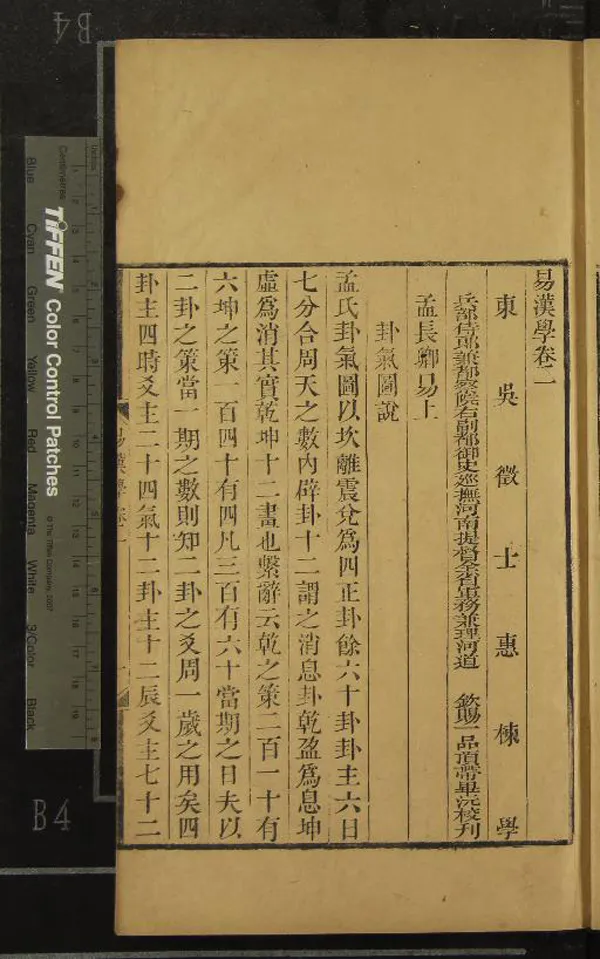 易漢學卷二
東吳徵士惠棟學
兵部侍郎兼都察院右副都御史巡撫河南提督全省軍務兼理河道 欽賜一品頂帶畢沅校刊
孟長卿易上
卦氣圖說
孟氏卦氣圖以坎離震兌為四正卦餘六十卦卦主六日
七分合周天之數內辟卦十二謂之消息卦乾盈為息坤
虛為消其實乾坤十二畫也繫辭云乾之策二百一十有
六坤之策一百四十有四凡三百有六十當期之日夫以
二卦之策當一期之數則知二卦之爻周一歲之用矣四
卦主四時爻主二十四氣十二卦主十二辰爻主七十二
易漢學 卷二
一
B4
B4
Centimetres
Inches
TIFFEN Color Control Patches
© The Tiffen Company, 2007
Blue
Cyan
Green
Yellow
Red
Magenta
White
3/Color
Black